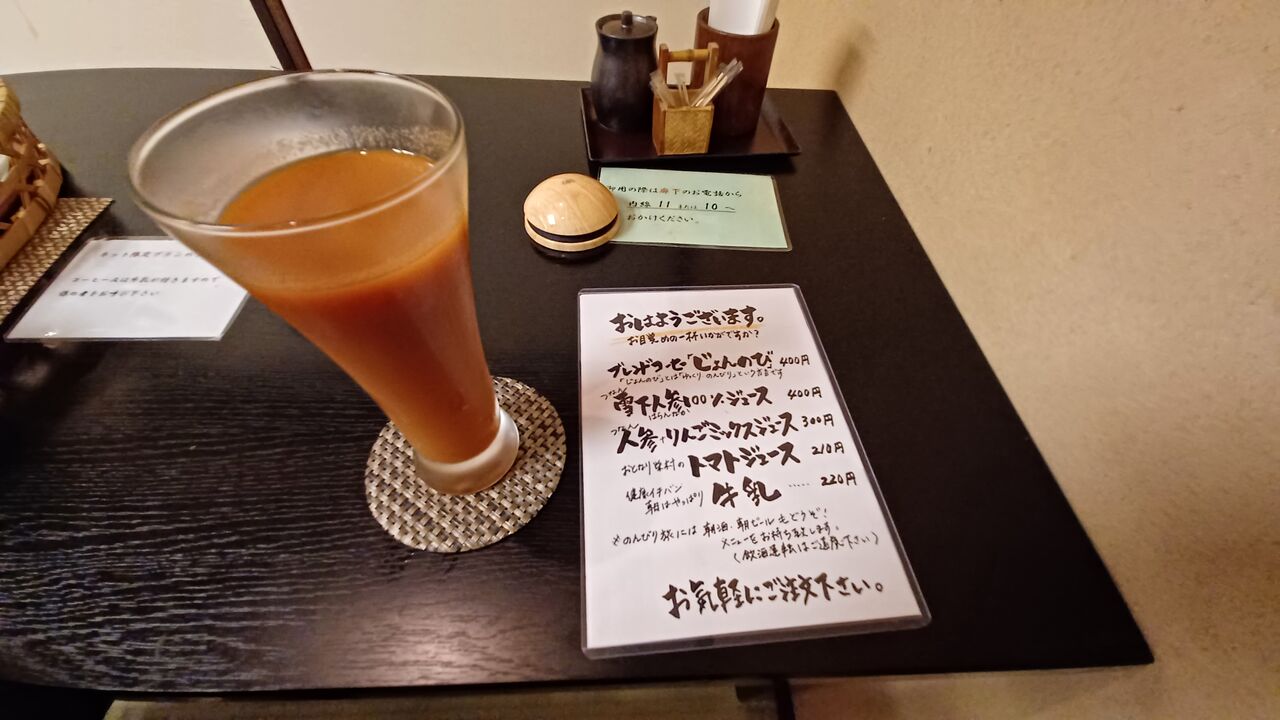 御用の際は廊下のお電話から
内線 11 または 10 へ
おかけください。
ネット限定プランの
コーヒーには牛乳が付きますので
おはようございます。
お目覚めの一杯いかがですか？
ブレンドコーヒー「じょんのび」 400円
「じょんのび」とは「ゆっくり のんびり」という方言です
つなん
雪下人参100%ジュース 400円
つなん
人参+りんごミックスジュース 300円
おとなり栄村の トマトジュース 210円
健康イチバン
朝はやっぱり 牛乳 ..... 220円
※のんびり旅には 朝酒・朝ビールもどうぞ！
メニューをお持ち致します。
(飲酒運転はご遠慮下さい)
お気軽にご注文下さい。